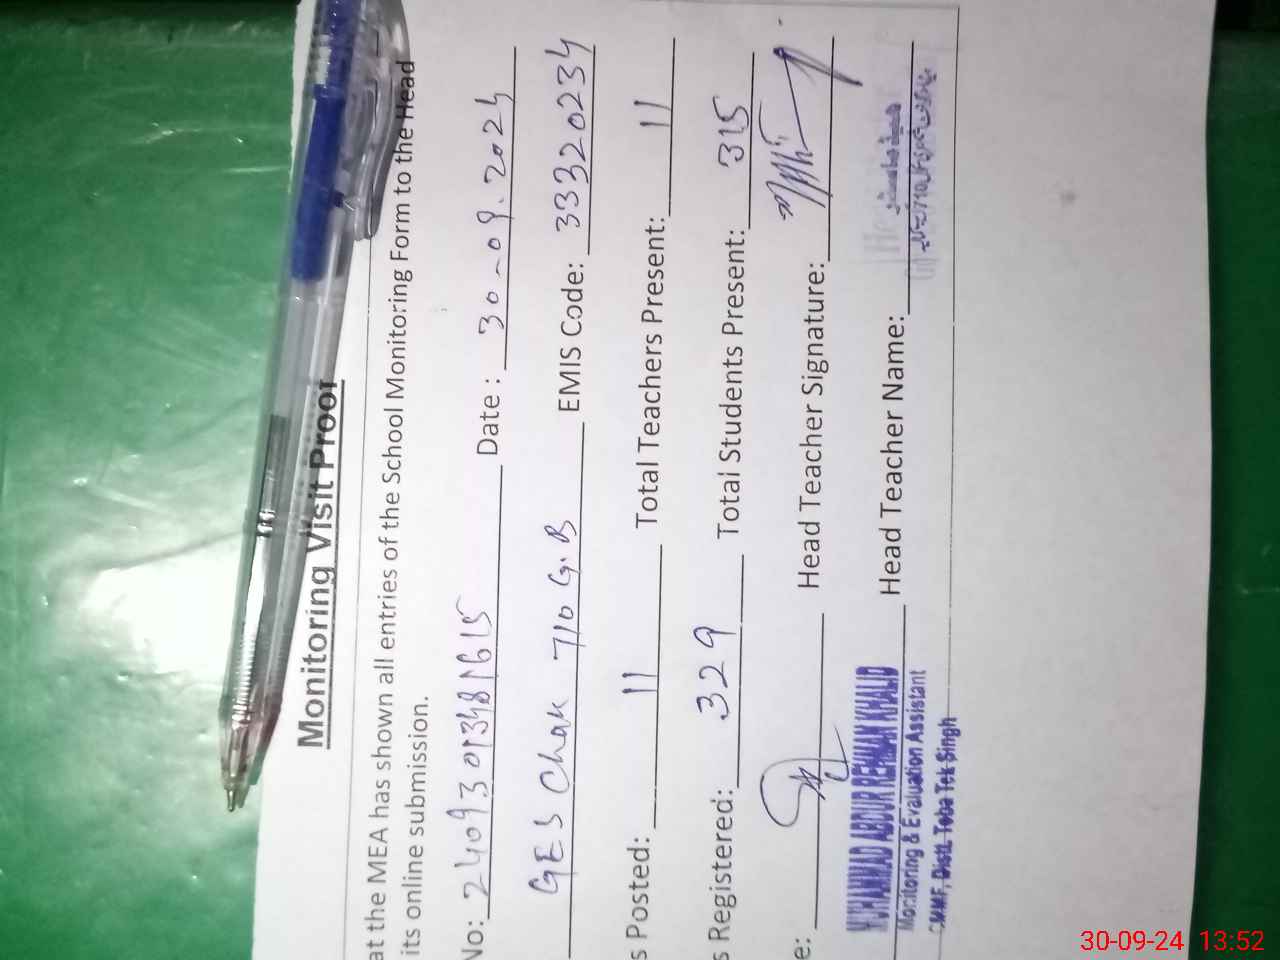 Monitoring Visit Proof
at the MEA has shown all entries of the School Monitoring Form to the Head
its online submission.
No: 24093013481615 Date : 30-09.2024
GES Chak 710 G.B EMIS Code: 33320234
s Posted: 11 Total Teachers Present: 11
s Registered: 329 Total Students Present: 315
e: Head Teacher Signature:
MUHAMMAD ABDUR REHMAN KHALID Head Teacher Name:
Monitoring & Evaluation Assistant
CMMF, Distt. Toba Tek Singh
30-09-24 13:52